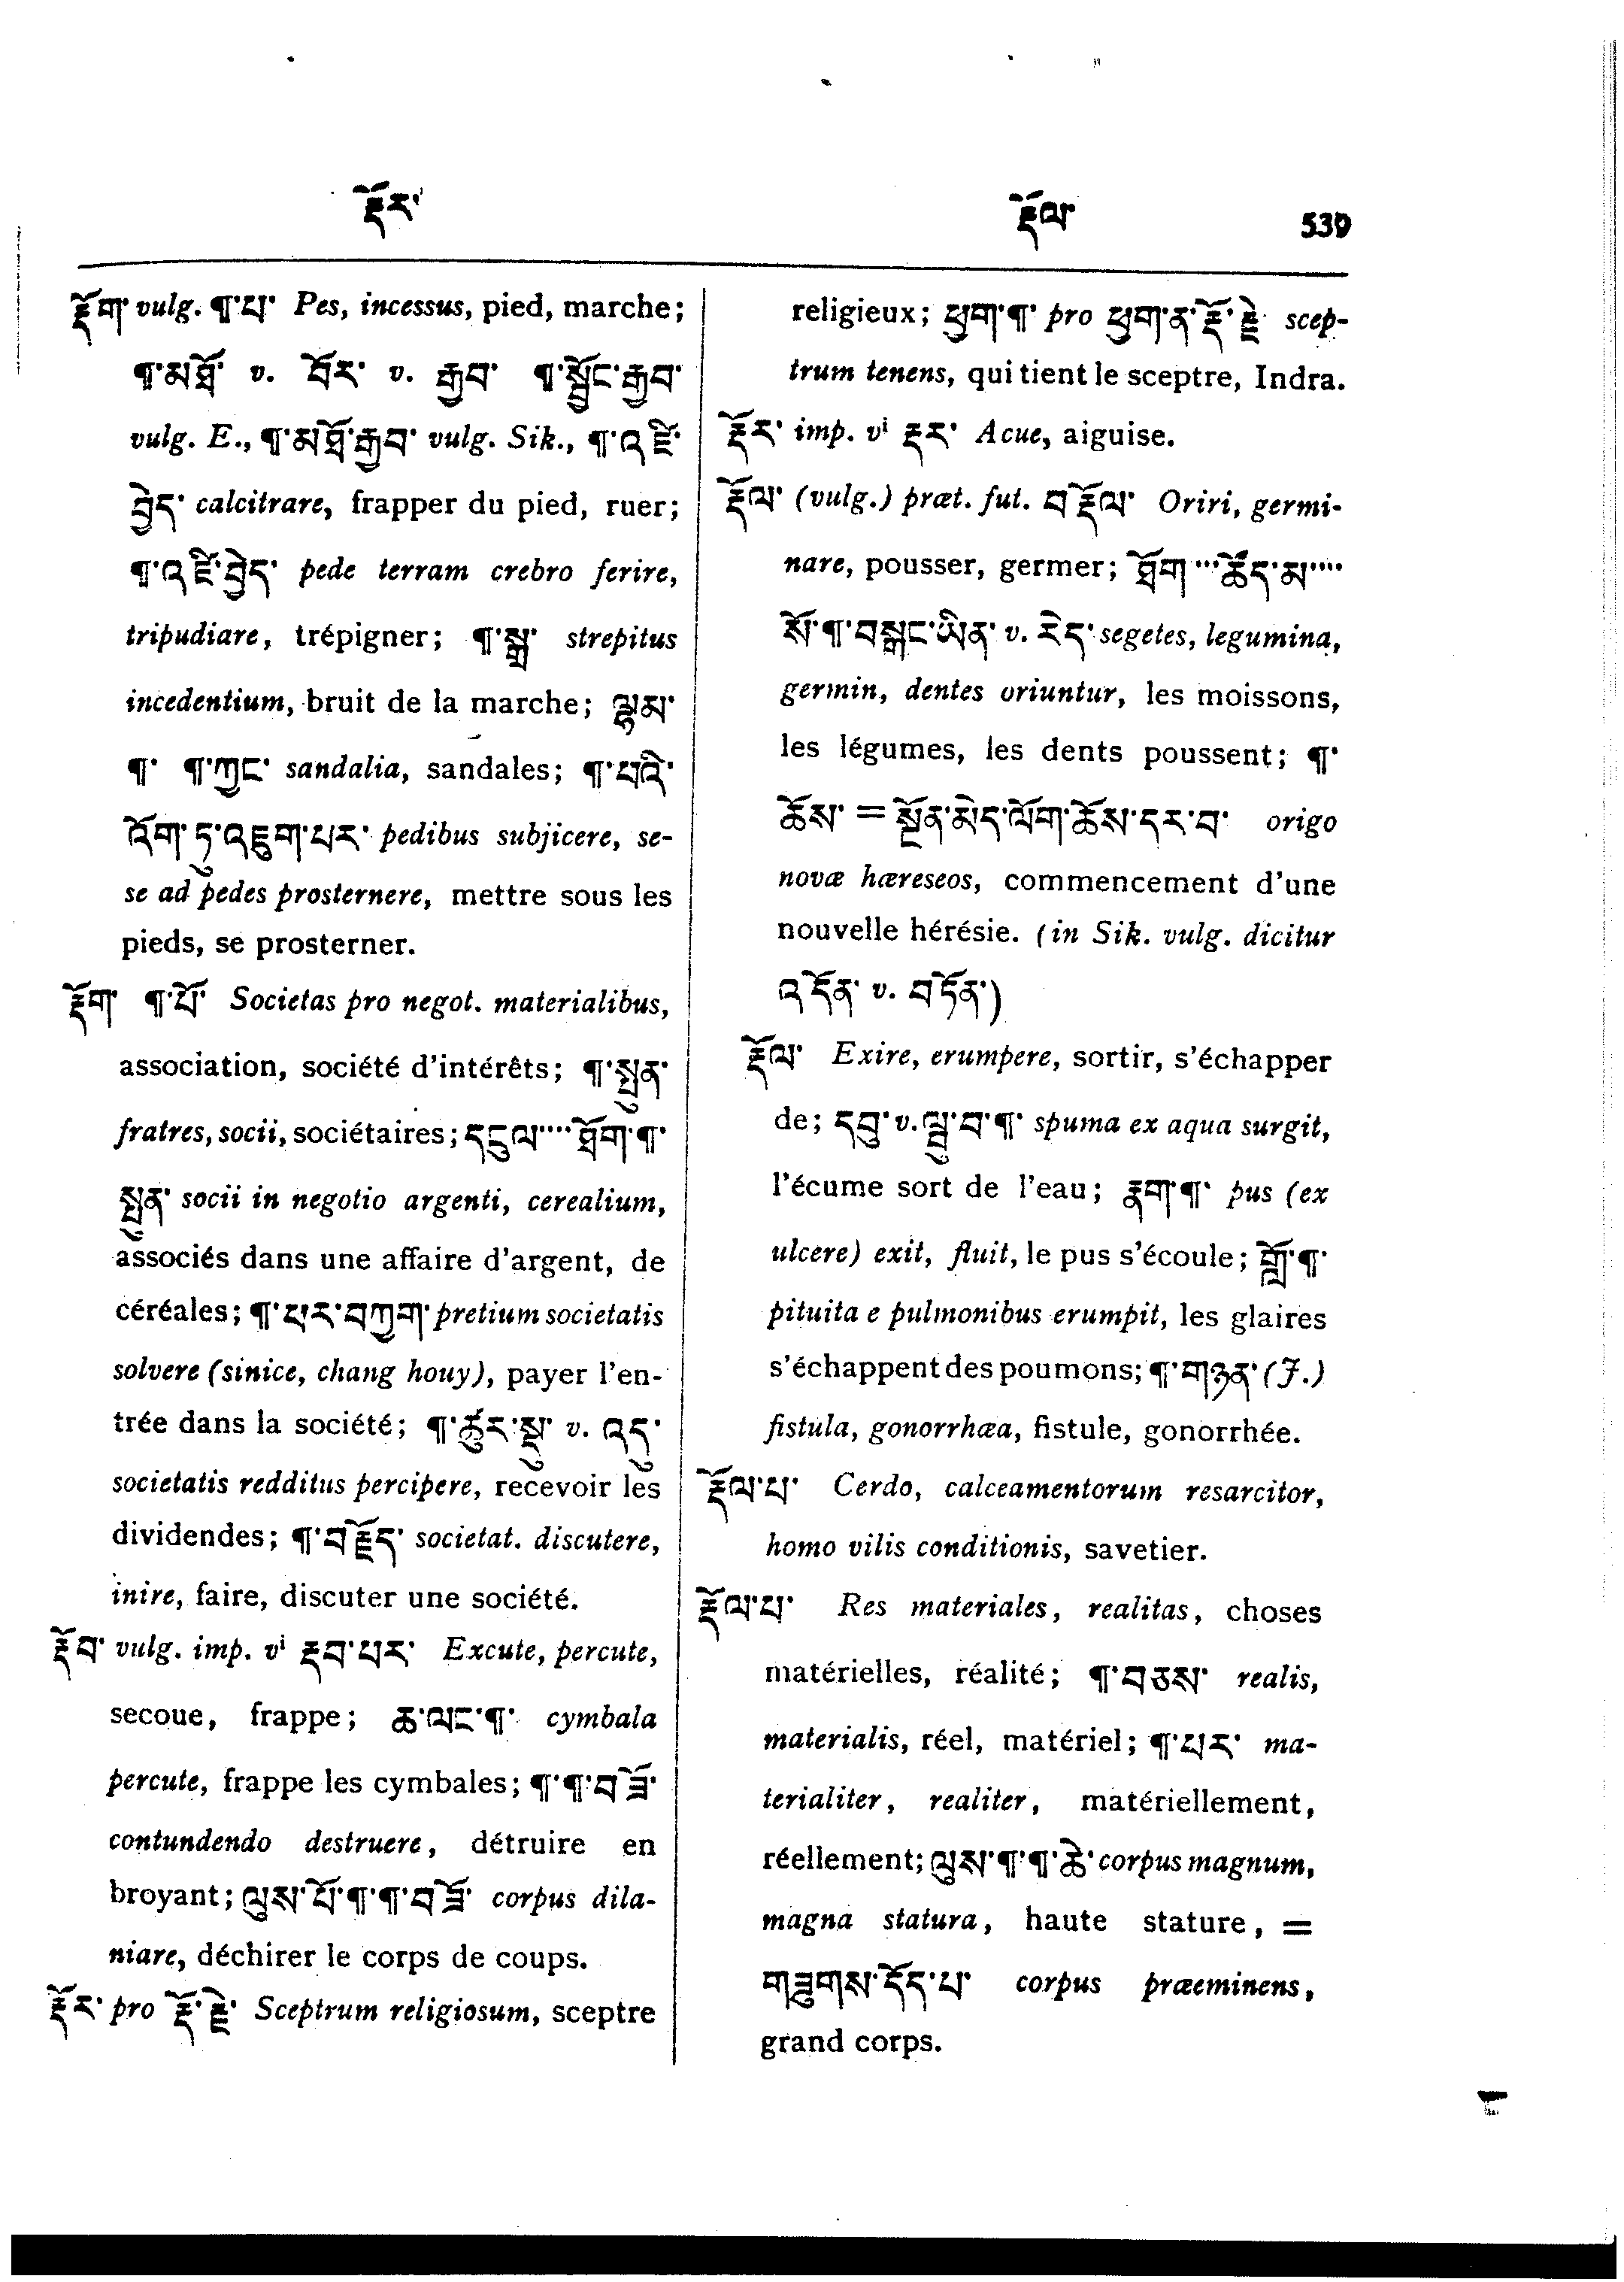 རྡོར་
རྡོལ་
539
རྡོག་ vulg. ¶་པ་ Pes, incessus, pied, marche;
¶་མཐོ་ v. བོར་ v. རྒྱབ་ ¶་སྤྲོང་རྒྱབ་
vulg. E., ¶་མཐོ་རྒྱབ་ vulg. Sik., ¶་འཛི་
བྱེད་ calcitrare, frapper du pied, ruer;
¶་འཛི་བྱེད་ pede terram crebro ferire,
tripudiare, trépigner; ¶་སྒྲ་ strepitus
incedentium, bruit de la marche; ལྷམ་
¶་ ¶་ཀྱང་ sandalia, sandales; ¶་པའི་
འོག་ཏུ་འཇུག་པར་ pedibus subjicere, se-
se ad pedes prosternere, mettre sous les
pieds, se prosterner.
རྡོག་ ¶་པོ་ Societas pro negot. materialibus,
association, société d'intérêts; ¶་སྤུན་
fratres, socii, sociétaires; དངུལ་····ཐོག་¶་
སྤུན་ socii in negotio argenti, cerealium,
associés dans une affaire d'argent, de
céréales; ¶་ཕར་བཀྱག་ pretium societatis
solvere (sinice, chang houy), payer l'en-
trée dans la société; ¶་ཚུར་སྡུ་ v. འདུ་
societatis redditus percipere, recevoir les
dividendes; ¶་བརྗོད་ societat. discutere,
inire, faire, discuter une société.
རྡོབ་ vulg. imp. vⁱ རྡབ་པར་ Excute, percute,
secoue, frappe; ཆ་ལང་¶་ cymbala
percute, frappe les cymbales; ¶་¶་བཟོ་
contundendo destruere, détruire en
broyant; ལུས་པོ་¶་¶་བཟོ་ corpus dila-
niare, déchirer le corps de coups.
རྡོར་ pro རྡོ་རྗེ་ Sceptrum religiosum, sceptre
religieux; ཕྱག་¶་ pro ཕྱག་ན་རྡོ་རྗེ་ scep-
trum tenens, qui tient le sceptre, Indra.
རྡོར་ imp. vⁱ རྡར་ Acue, aiguise.
རྡོལ་ (vulg.) præt. fut. བརྡོལ་ Oriri, germi-
nare, pousser, germer; ཐོག་···ཚོད་མ་····
སོ་¶་བསྒང་ཡིན་ v. རེད་ segetes, legumina,
germin, dentes oriuntur, les moissons,
les légumes, les dents poussent; ¶་
ཆོས་ = སྔོན་མེད་ལོག་ཆོས་དར་བ་ origo
novæ hæreseos, commencement d'une
nouvelle hérésie. (in Sik. vulg. dicitur
འདོན་ v. བཏོན་)
རྡོལ་ Exire, erumpere, sortir, s'échapper
de; དབུ་ v. ལྦུ་བ་¶་ spuma ex aqua surgit,
l'écume sort de l'eau; རྣག་¶་ pus (ex
ulcere) exit, fluit, le pus s'écoule; གློ་¶་
pituita e pulmonibus erumpit, les glaires
s'échappent des poumons; ¶་གཉན་ (J.)
fistula, gonorrhæa, fistule, gonorrhée.
རྡོལ་པ་ Cerdo, calceamentorum resarcitor,
homo vilis conditionis, savetier.
རྡོལ་པ་ Res materiales, realitas, choses
matérielles, réalité; ¶་བཅས་ realis,
materialis, réel, matériel; ¶་པར་ ma-
terialiter, realiter, matériellement,
réellement; ལུས་¶་¶་ཆེ་ corpus magnum,
magna statura, haute stature, =
གཟུགས་དོད་པ་ corpus præeminens,
grand corps.